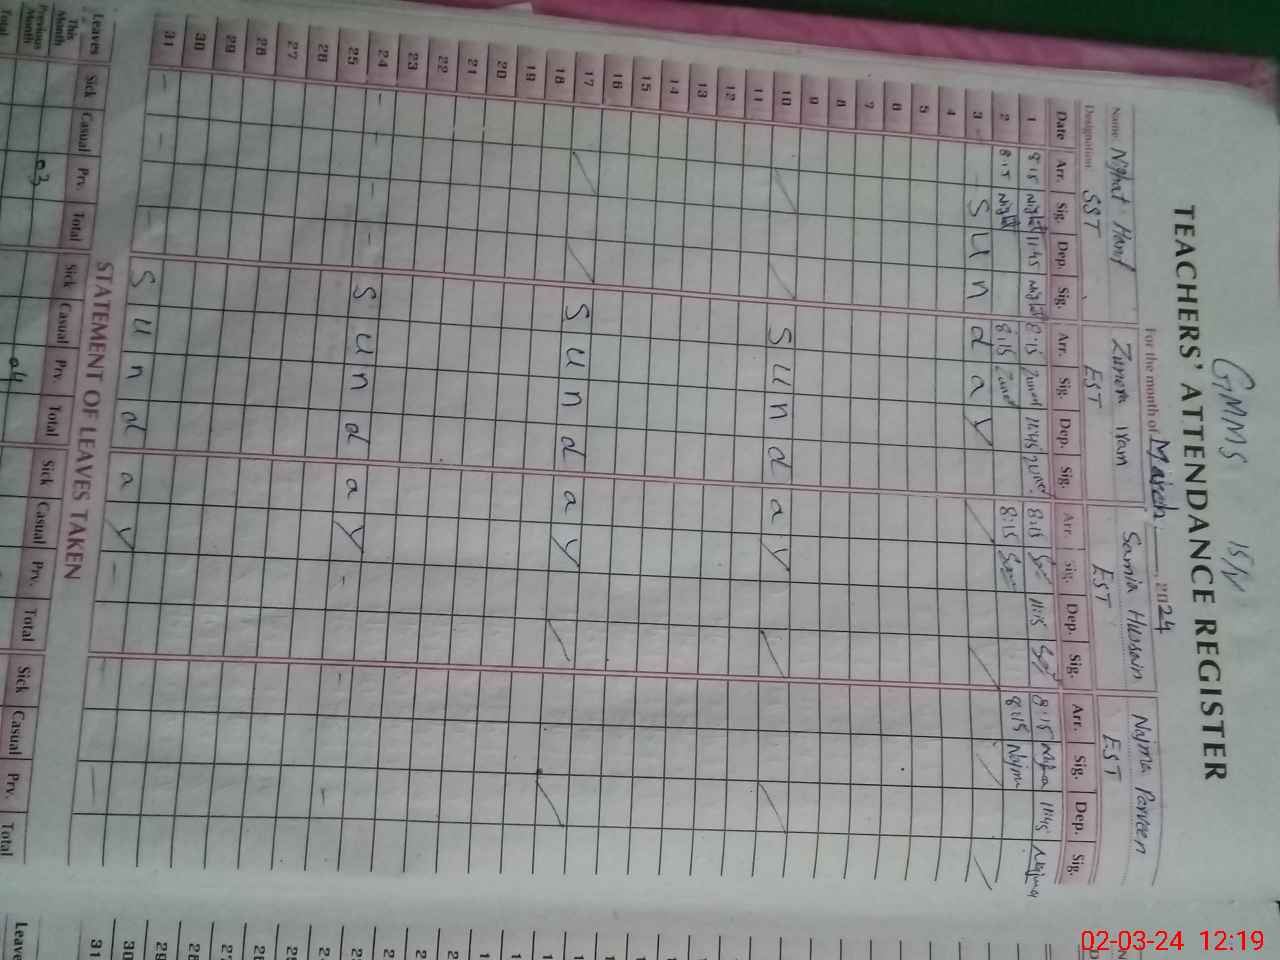 GMMS 15/N
TEACHERS' ATTENDANCE REGISTER
For the month of March, 2024
Name Nighat Hanif Zunera Iram Samia Hussain Najma Parveen
Designation SST EST EST EST
Date Arr. Sig. Dep. Sig. Arr. Sig. Dep. Sig. Arr. Sig. Dep. Sig. Arr. Sig. Dep. Sig.
1 8:15 Nighat 11:45 Nighat 8:15 11:45 8:15 11:15 8:15 Najma 11:45 Najma
2 8:15 Nighat 8:15 8:15 8:15 Najma
3 Sunday
4
5
6
7
8
9
10 Sunday
11
12
13
14
15
16
17 Sunday
18
19
20
21
22
23
24 Sunday
25
26
27
28
29
30
31 Sunday
STATEMENT OF LEAVES TAKEN
Leaves Sick Casual Prv. Total Sick Casual Prv. Total Sick Casual Prv. Total Sick Casual Prv. Total
This Month
Previous Month 03 04
Total
29
30
31
Leave
02-03-24 12:19